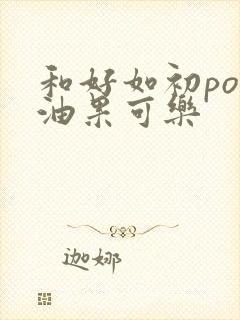 和好如初po
油果可樂
迦娜